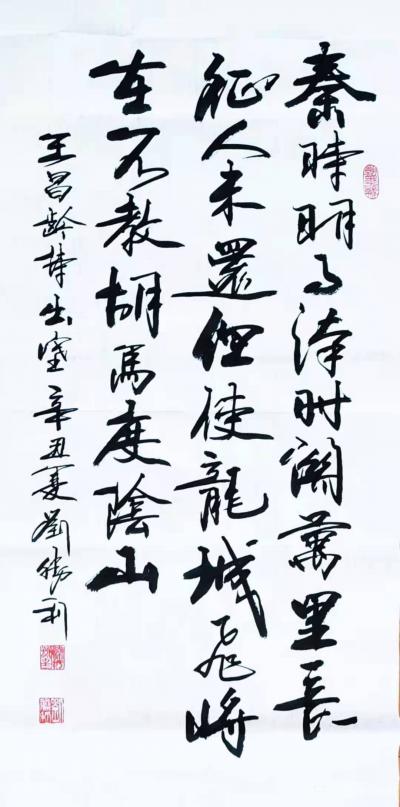 秦時明月漢时關萬里長
征人未還但使龍城飛將
在不教胡馬度陰山
王昌齡詩出塞辛丑夏劉勝利